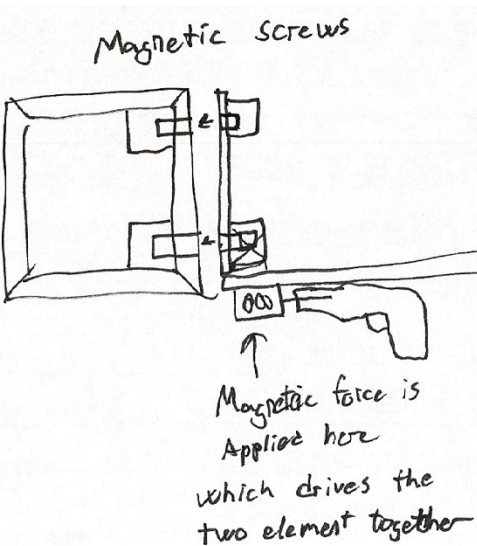 Magnetic Screws
Magnetic force is
Applied here
which drives the
two element together